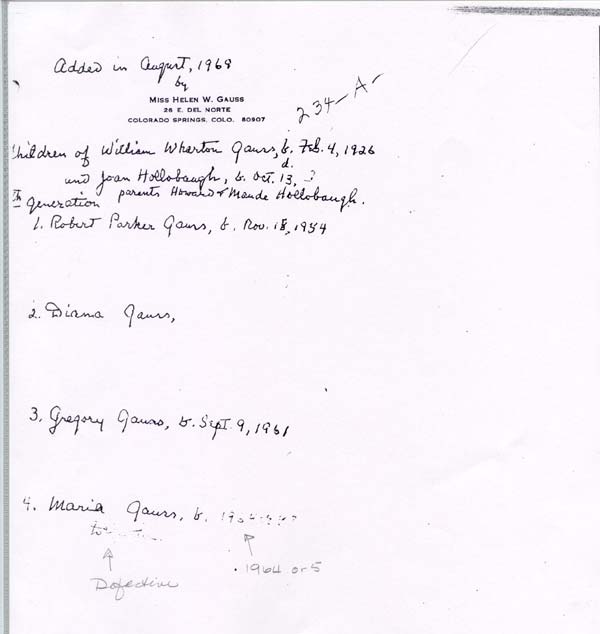 Added in August, 1968
by
MISS HELEN W. GAUSS
26 E. DEL NORTE
COLORADO SPRINGS, COLO. 80907
234-A-
Children of William Wharton Gauss, b. Feb. 4, 1926
d.
and Joan Hollobaugh, b. Oct. 13, ?
parents Howard & Maude Hollobaugh.
generation
1. Robert Parker Gauss, b. Nov. 18, 1954
2. Diana Gauss,
3. Gregory Gauss, b. Sept. 9, 1961
4. Maria Gauss, b.
1964 or 5
Defective